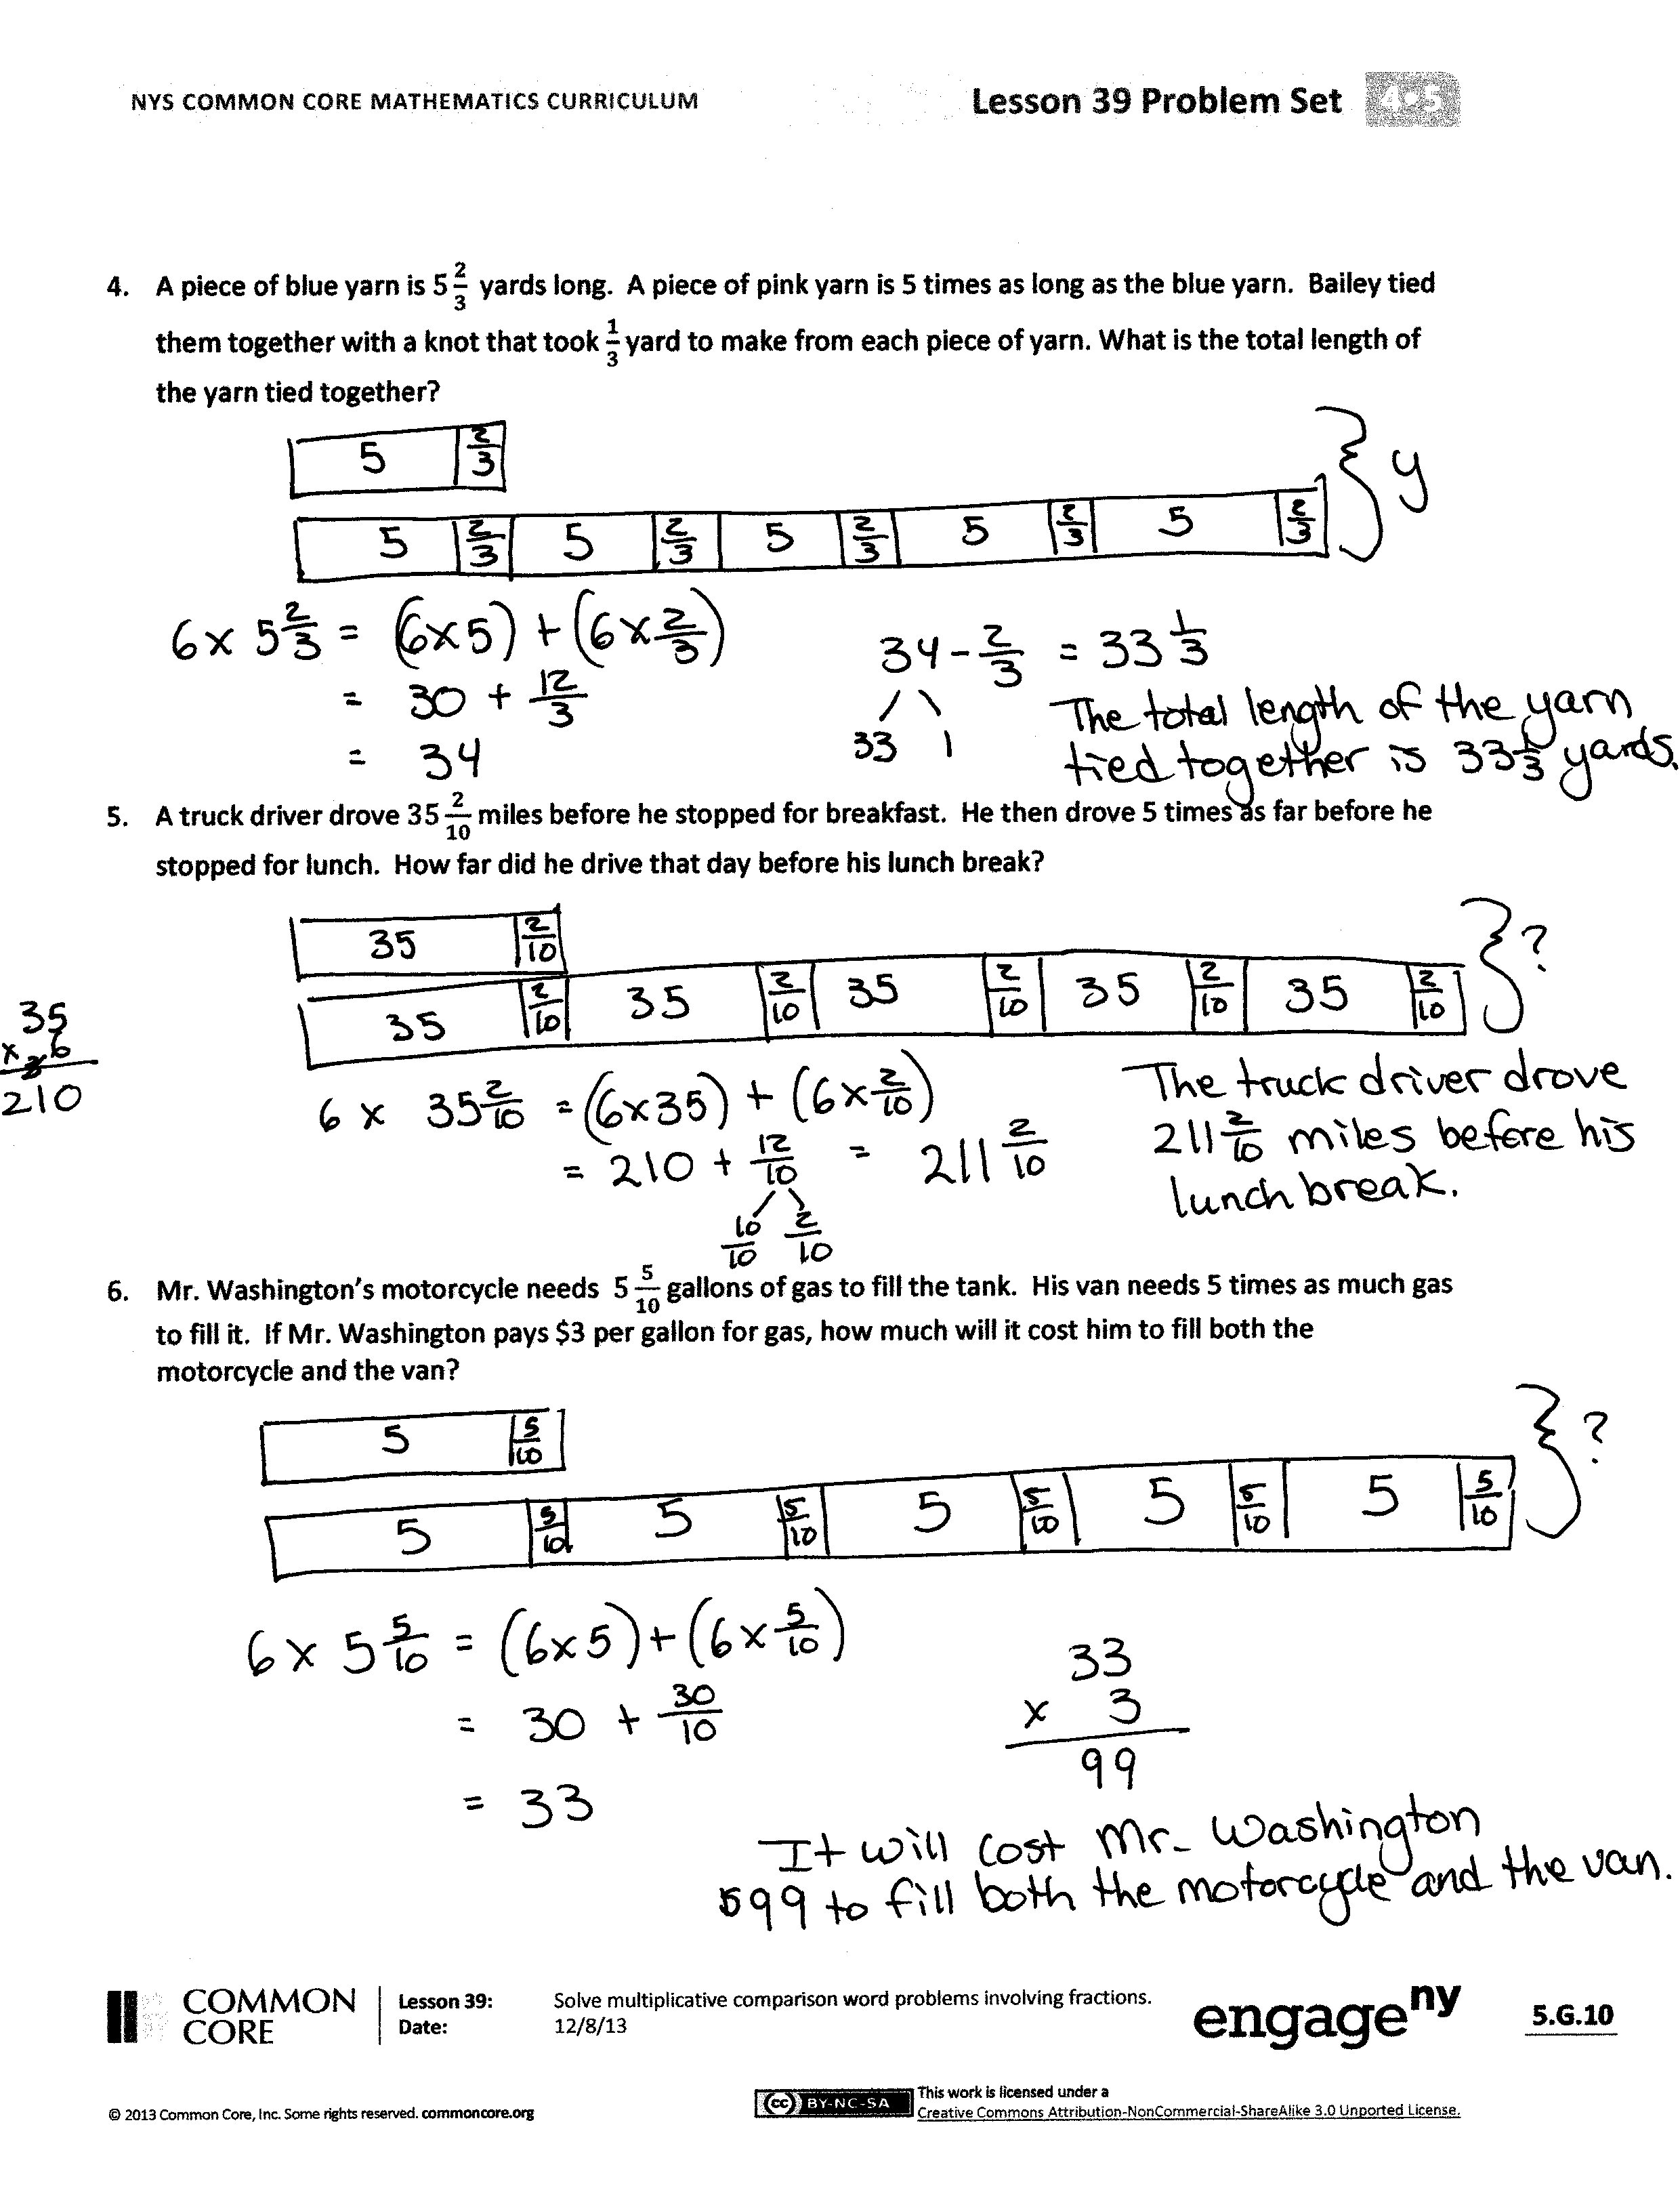 NYS COMMON CORE MATHEMATICS CURRICULUM Lesson 39 Problem Set 4•5
4. A piece of blue yarn is 5 2/3 yards long. A piece of pink yarn is 5 times as long as the blue yarn. Bailey tied
them together with a knot that took 1/3 yard to make from each piece of yarn. What is the total length of
the yarn tied together?
5 2/3
5 2/3 5 2/3 5 2/3 5 2/3 5 2/3 } y
6 x 5 2/3 = (6x5) + (6 x 2/3)
= 30 + 12/3
= 34
34 - 2/3 = 33 1/3
33 1
The total length of the yarn
tied together is 33 1/3 yards.
5. A truck driver drove 35 2/10 miles before he stopped for breakfast. He then drove 5 times as far before he
stopped for lunch. How far did he drive that day before his lunch break?
35 2/10
35 2/10 35 2/10 35 2/10 35 2/10 35 2/10 } ?
35
x 6
210
6 x 35 2/10 = (6x35) + (6 x 2/10)
= 210 + 12/10 = 211 2/10
10/10 2/10
The truck driver drove
211 2/10 miles before his
lunch break.
6. Mr. Washington's motorcycle needs 5 5/10 gallons of gas to fill the tank. His van needs 5 times as much gas
to fill it. If Mr. Washington pays $3 per gallon for gas, how much will it cost him to fill both the
motorcycle and the van?
5 5/10
5 5/10 5 5/10 5 5/10 5 5/10 5 5/10 } ?
6 x 5 5/10 = (6x5) + (6 x 5/10)
= 30 + 30/10
= 33
33
x 3
99
It will cost Mr. Washington
$99 to fill both the motorcycle and the van.
COMMON
CORE
Lesson 39: Solve multiplicative comparison word problems involving fractions.
Date: 12/8/13
engageny
5.G.10
© 2013 Common Core, Inc. Some rights reserved. commoncore.org
cc BY-NC-SA
This work is licensed under a
Creative Commons Attribution-NonCommercial-ShareAlike 3.0 Unported License.